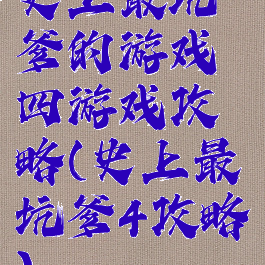 史上最坑
爹的游戏
四游戏攻
略(史上最
坑爹4攻略
)